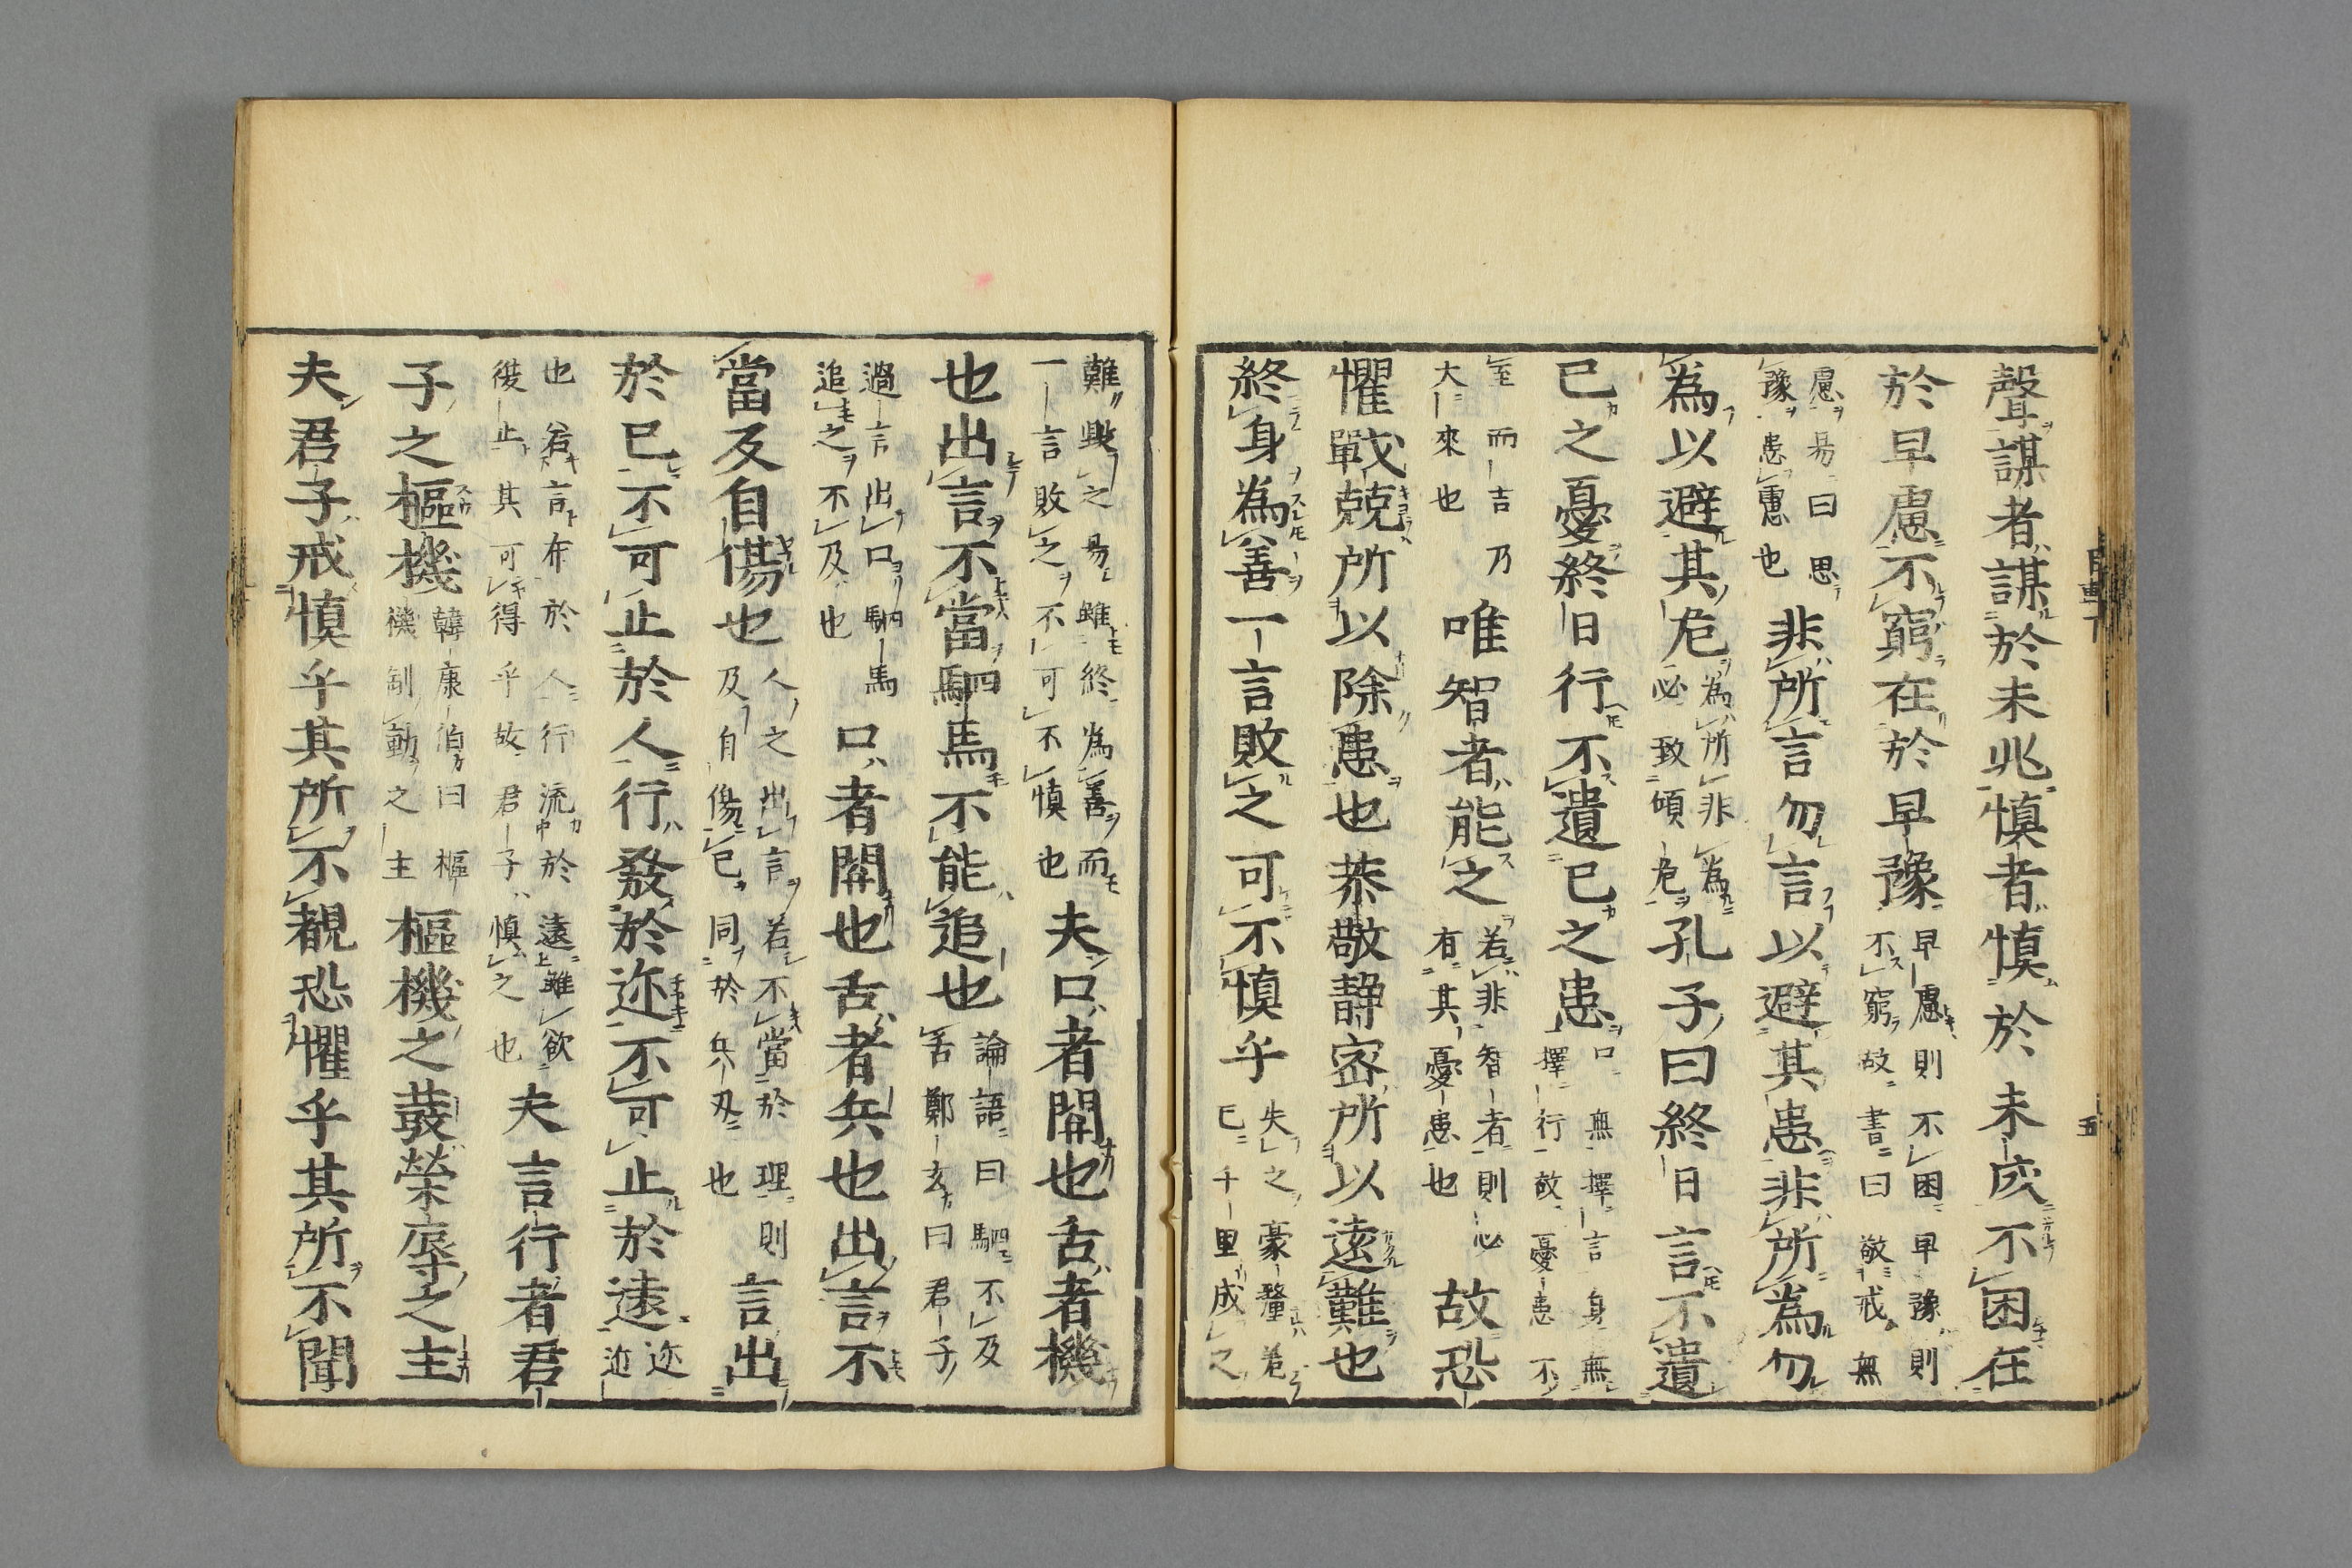 聲謀者謀於未兆慎者慎於未成不困在
於早慮不窮在於早豫早慮則不困早豫則
不窮故書曰敬戒無
慮易曰思
豫患慮也非所言勿言以避其患非所為勿
為以避其危為所非為
必致傾危孔子曰終日言不遺
已之憂終日行不遺已之患口無擇言身無
擇行故憂患不
至而吉乃
大來也唯智者能之若非智者則必
有其憂患也故恐
懼戰兢所以除患也恭敬靜密所以遠難也
終身為善一言敗之可不慎乎失之豪釐差
已千里成之
難敗之易雖終為善而
一言敗之不可不慎也夫口者關也舌者機
也出言不當駟馬不能追也論語曰駟不及
舌鄭玄曰君子
過言出口駟馬
追之不及也口者關也舌者兵也出言不
當反自傷也人之出言若不當於理則
及自傷已同於兵刃也言出
於已不可止於人行發於迩不可止於遠迩
近
也若言布於人行流於遠雖欲
後止其可得乎故君子慎之也夫言行者君
子之樞機韓康伯曰樞
機制動之主樞機之發榮辱之主
夫君子戒慎乎其所不覩恐懼乎其所不聞
五